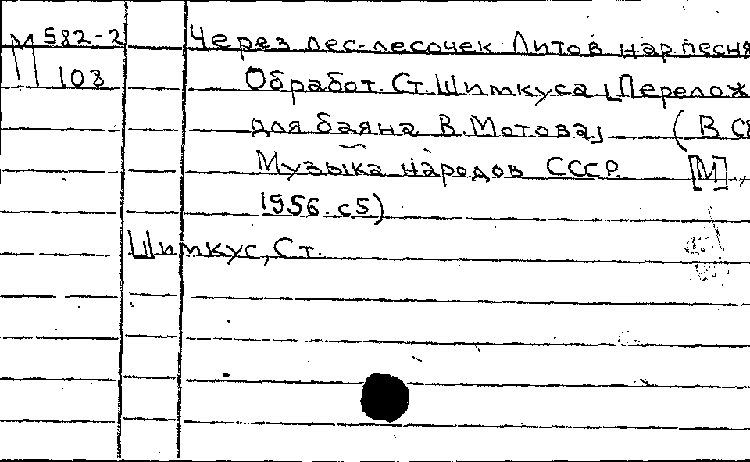 М 582-2 Через лес-лесочек Литов нар песня
11 103 Обработ. Ст. Шимкуса [Перелож
для баяна В. Мотова] (В с
Музыка народов СССР. [М].,
1956. с5)
Шимкус, Ст.